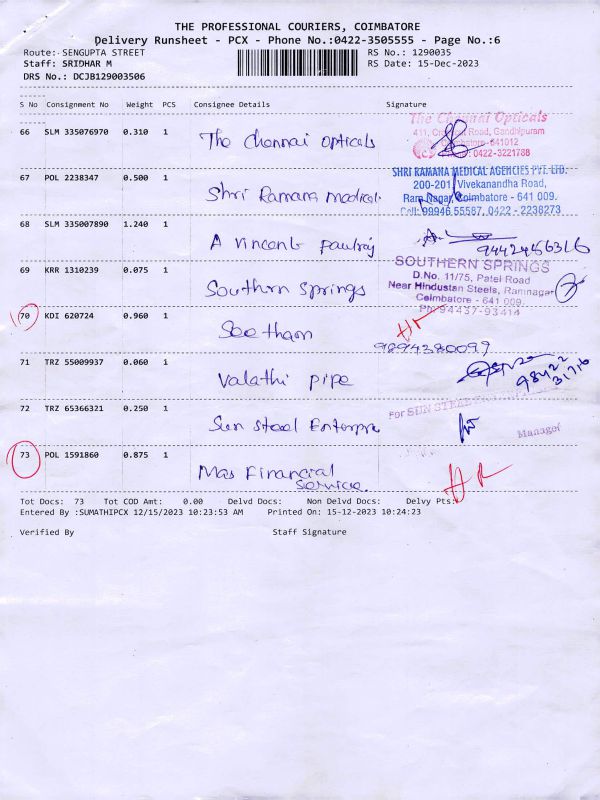 THE PROFESSIONAL COURIERS, COIMBATORE
Delivery Runsheet - PCX - Phone No.:0422-3505555 - Page No.:6
Route: SENGUPTA STREET
RS No.: 1290035
Staff: SRIDHAR M
RS Date: 15-Dec-2023
DRS No.: DCJB129003506
S No Consignment No Weight PCS Consignee Details Signature
66 SLM 335076970 0.310 1 The Chennai opticals
The Chennai Opticals
Road, Gandhipuram
Coimbatore-641012
0422-3221788
67 POL 2238347 0.500 1 Shri Ramana medical
SHRI RAMANA MEDICAL AGENCIES PVT. LTD.
200-201, Vivekanandha Road,
Ram Nagar, Coimbatore - 641 009.
Cell: 99946 55567, 0422 - 2238273
68 SLM 335007890 1.240 1 A Vincent paulraj
9442456316
69 KRR 1310239 0.075 1 Southrn springs
SOUTHERN SPRINGS
D.No. 11/75, Patel Road
Near Hindustan Steels, Ramnagar
Coimbatore - 641 009.
Ph: 94437-93414
70 KDI 620724 0.960 1 Seetham
HR
9894380099
71 TRZ 55009937 0.060 1 Valathi pipe
98422
31716
72 TRZ 65366321 0.250 1 Sun steel Enterpre
For SUN STEEL
Manager
73 POL 1591860 0.875 1 Mas Financial
Service.
HR
Tot Docs: 73 Tot COD Amt: 0.00 Delvd Docs: Non Delvd Docs: Delvy Pts:
Entered By :SUMATHIPCX 12/15/2023 10:23:53 AM Printed On: 15-12-2023 10:24:23
Verified By Staff Signature